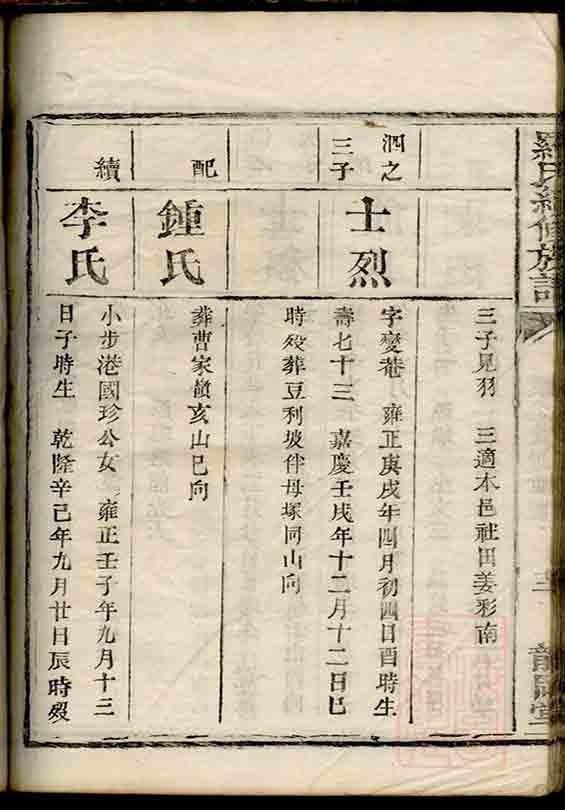 三子見羽　三適本邑社田姜彩南
泗之
三子
士烈
字變菴　雍正庚戌年四月初四日酉時生
壽七十三　嘉慶壬戌年十二月十二日巳
時歿葬豆利坡伴母塚同山向
配
鍾氏
葬曹家嶺亥山巳向
續
李氏
小步港國珍公女　雍正壬子年九月十三
日子時生　乾隆辛巳年九月廿日辰時歿